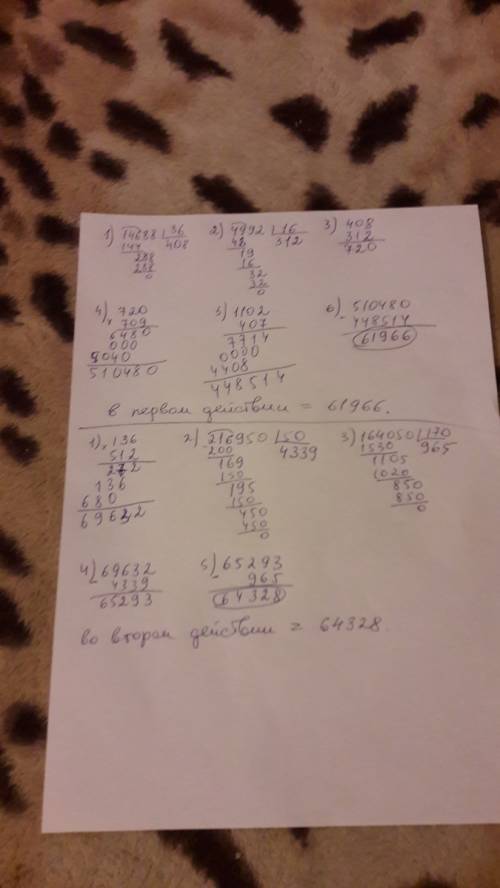 1) 14688 | 36   2) 4992 | 16   3) 408
144   408   48   312   312
288   19   720
288   16
0   32
32
0
4) 720   5) 1102   6) 510480
709   407   448514
6480   7714   61966
000   0000
5040   4408
510480   448514
в первом действии = 61966.
1) 136   2) 216950 | 50   3) 164050 | 170
512   200   4339   1530   965
272   169   1105
136   150   1020
680   195   850
69632   150   850
450   0
450
0
4) 69632   5) 65293
4339   965
65293   64328
во втором действии = 64328.